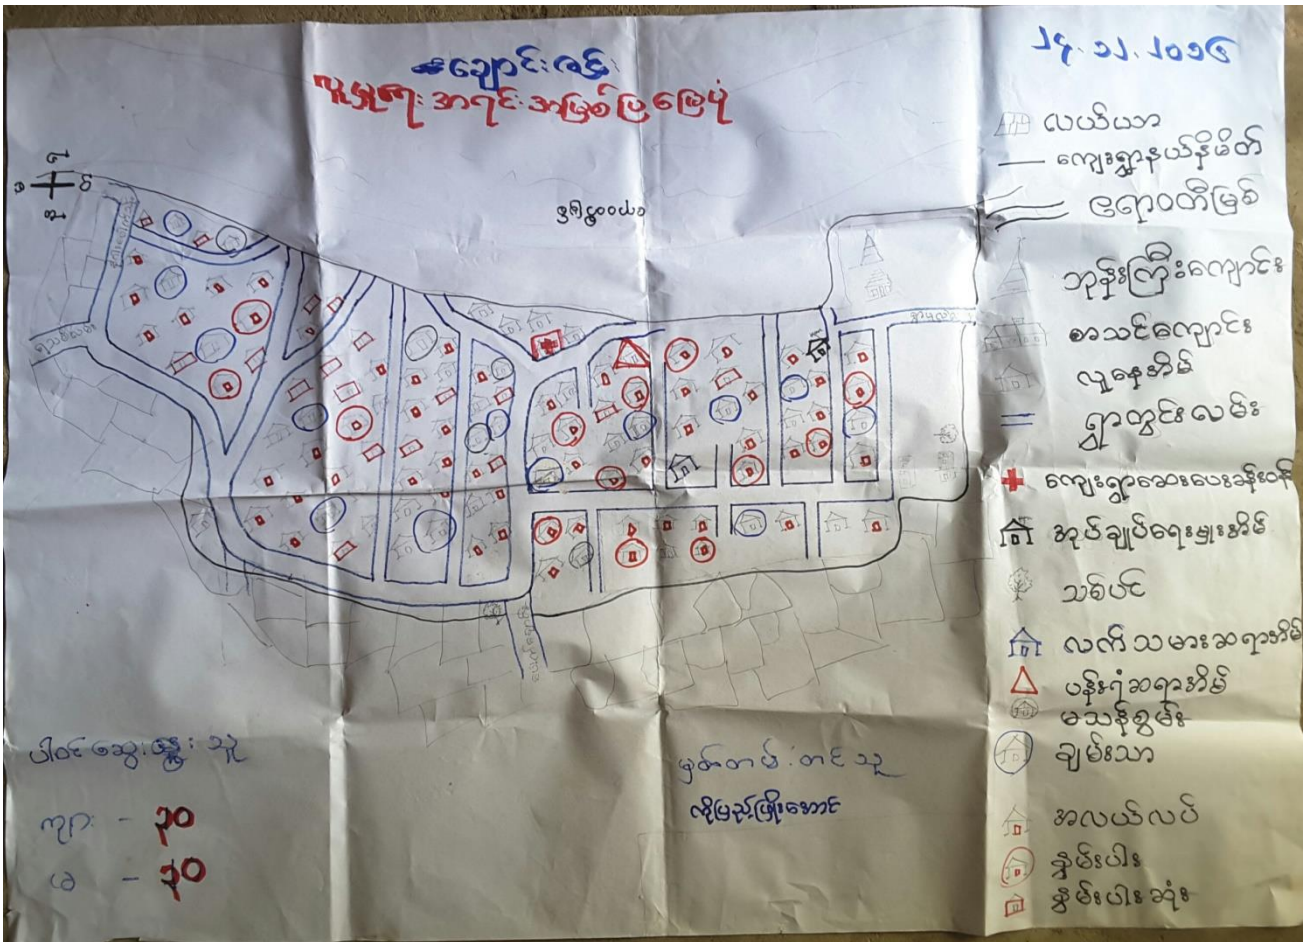 ချောင်းစပ်
လူမှုရေး အရင်းအမြစ်ပြ မြေပုံ
၂၄.၁၁.၂၀၁၆
လယ်ယာ
ကျေးရွာနယ်နိမိတ်
ဧရာဝတီမြစ်
ဘုန်းကြီးကျောင်း
စာသင်ကျောင်း
လူနေအိမ်
ရွာတွင်းလမ်း
ကျေးရွာဆေးပေးခန်း
အုပ်ချုပ်ရေးမှူးအိမ်
သစ်ပင်
လက်သမားဆရာအိမ်
ပန်းရံဆရာအိမ်
မသန်စွမ်း
ချမ်းသာ
အလယ်လပ်
နွမ်းပါး
နွမ်းပါးဆုံး
ပါဝင်ဆွေးနွေးသူ
ကျား - ၃၀
မ - ၃၀
မှတ်တမ်းတင်သူ
ကိုပြည့်ဖြိုးအောင်